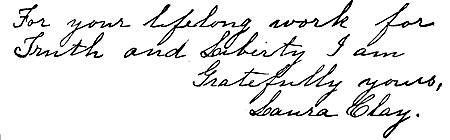 For your lifelong work for
Truth and Liberty I am
Gratefully yours,
Laura Clay.